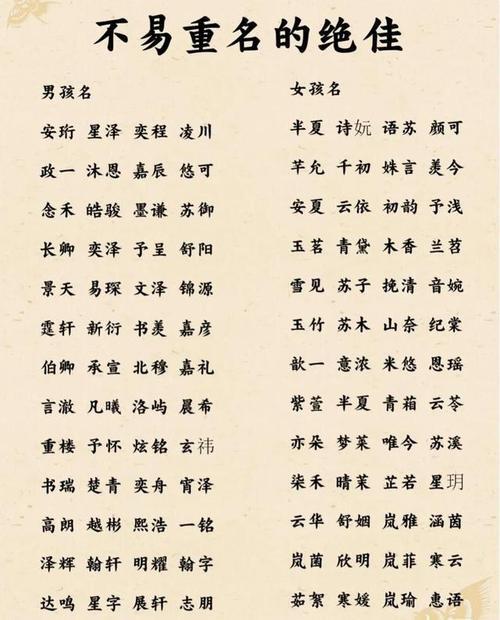 不易重名的绝佳
男孩名
安珩 星泽 奕程 凌川
政一 沐恩 嘉辰 悠可
念禾 皓骏 墨谦 苏御
长卿 奕泽 予呈 舒阳
景天 易琛 文泽 锦源
霆轩 新衍 书羡 嘉彦
伯卿 承宣 北穆 嘉礼
言澈 凡曦 洛屿 晨希
重楼 予怀 炫铭 玄祎
书瑞 楚青 奕舟 宵泽
高朗 越彬 熙浩 一铭
泽辉 翰轩 明耀 翰字
达鸣 星字 展轩 志朋
女孩名
半夏 诗妧 语苏 颜可
芊允 千初 姝言 羡今
安夏 云依 初韵 予浅
玉茗 青黛 木香 兰苕
雪见 苏子 挽清 音婉
玉竹 苏木 山奈 纪棠
歆一 意浓 米悠 恩瑶
紫萱 半夏 青葙 云苓
亦朵 梦茱 唯今 苏溪
柒禾 晴茉 芷若 星玥
云华 舒姻 岚雅 涵茵
岚茵 欣明 岚菲 寒云
茹絮 寒媛 岚瑜 惠语